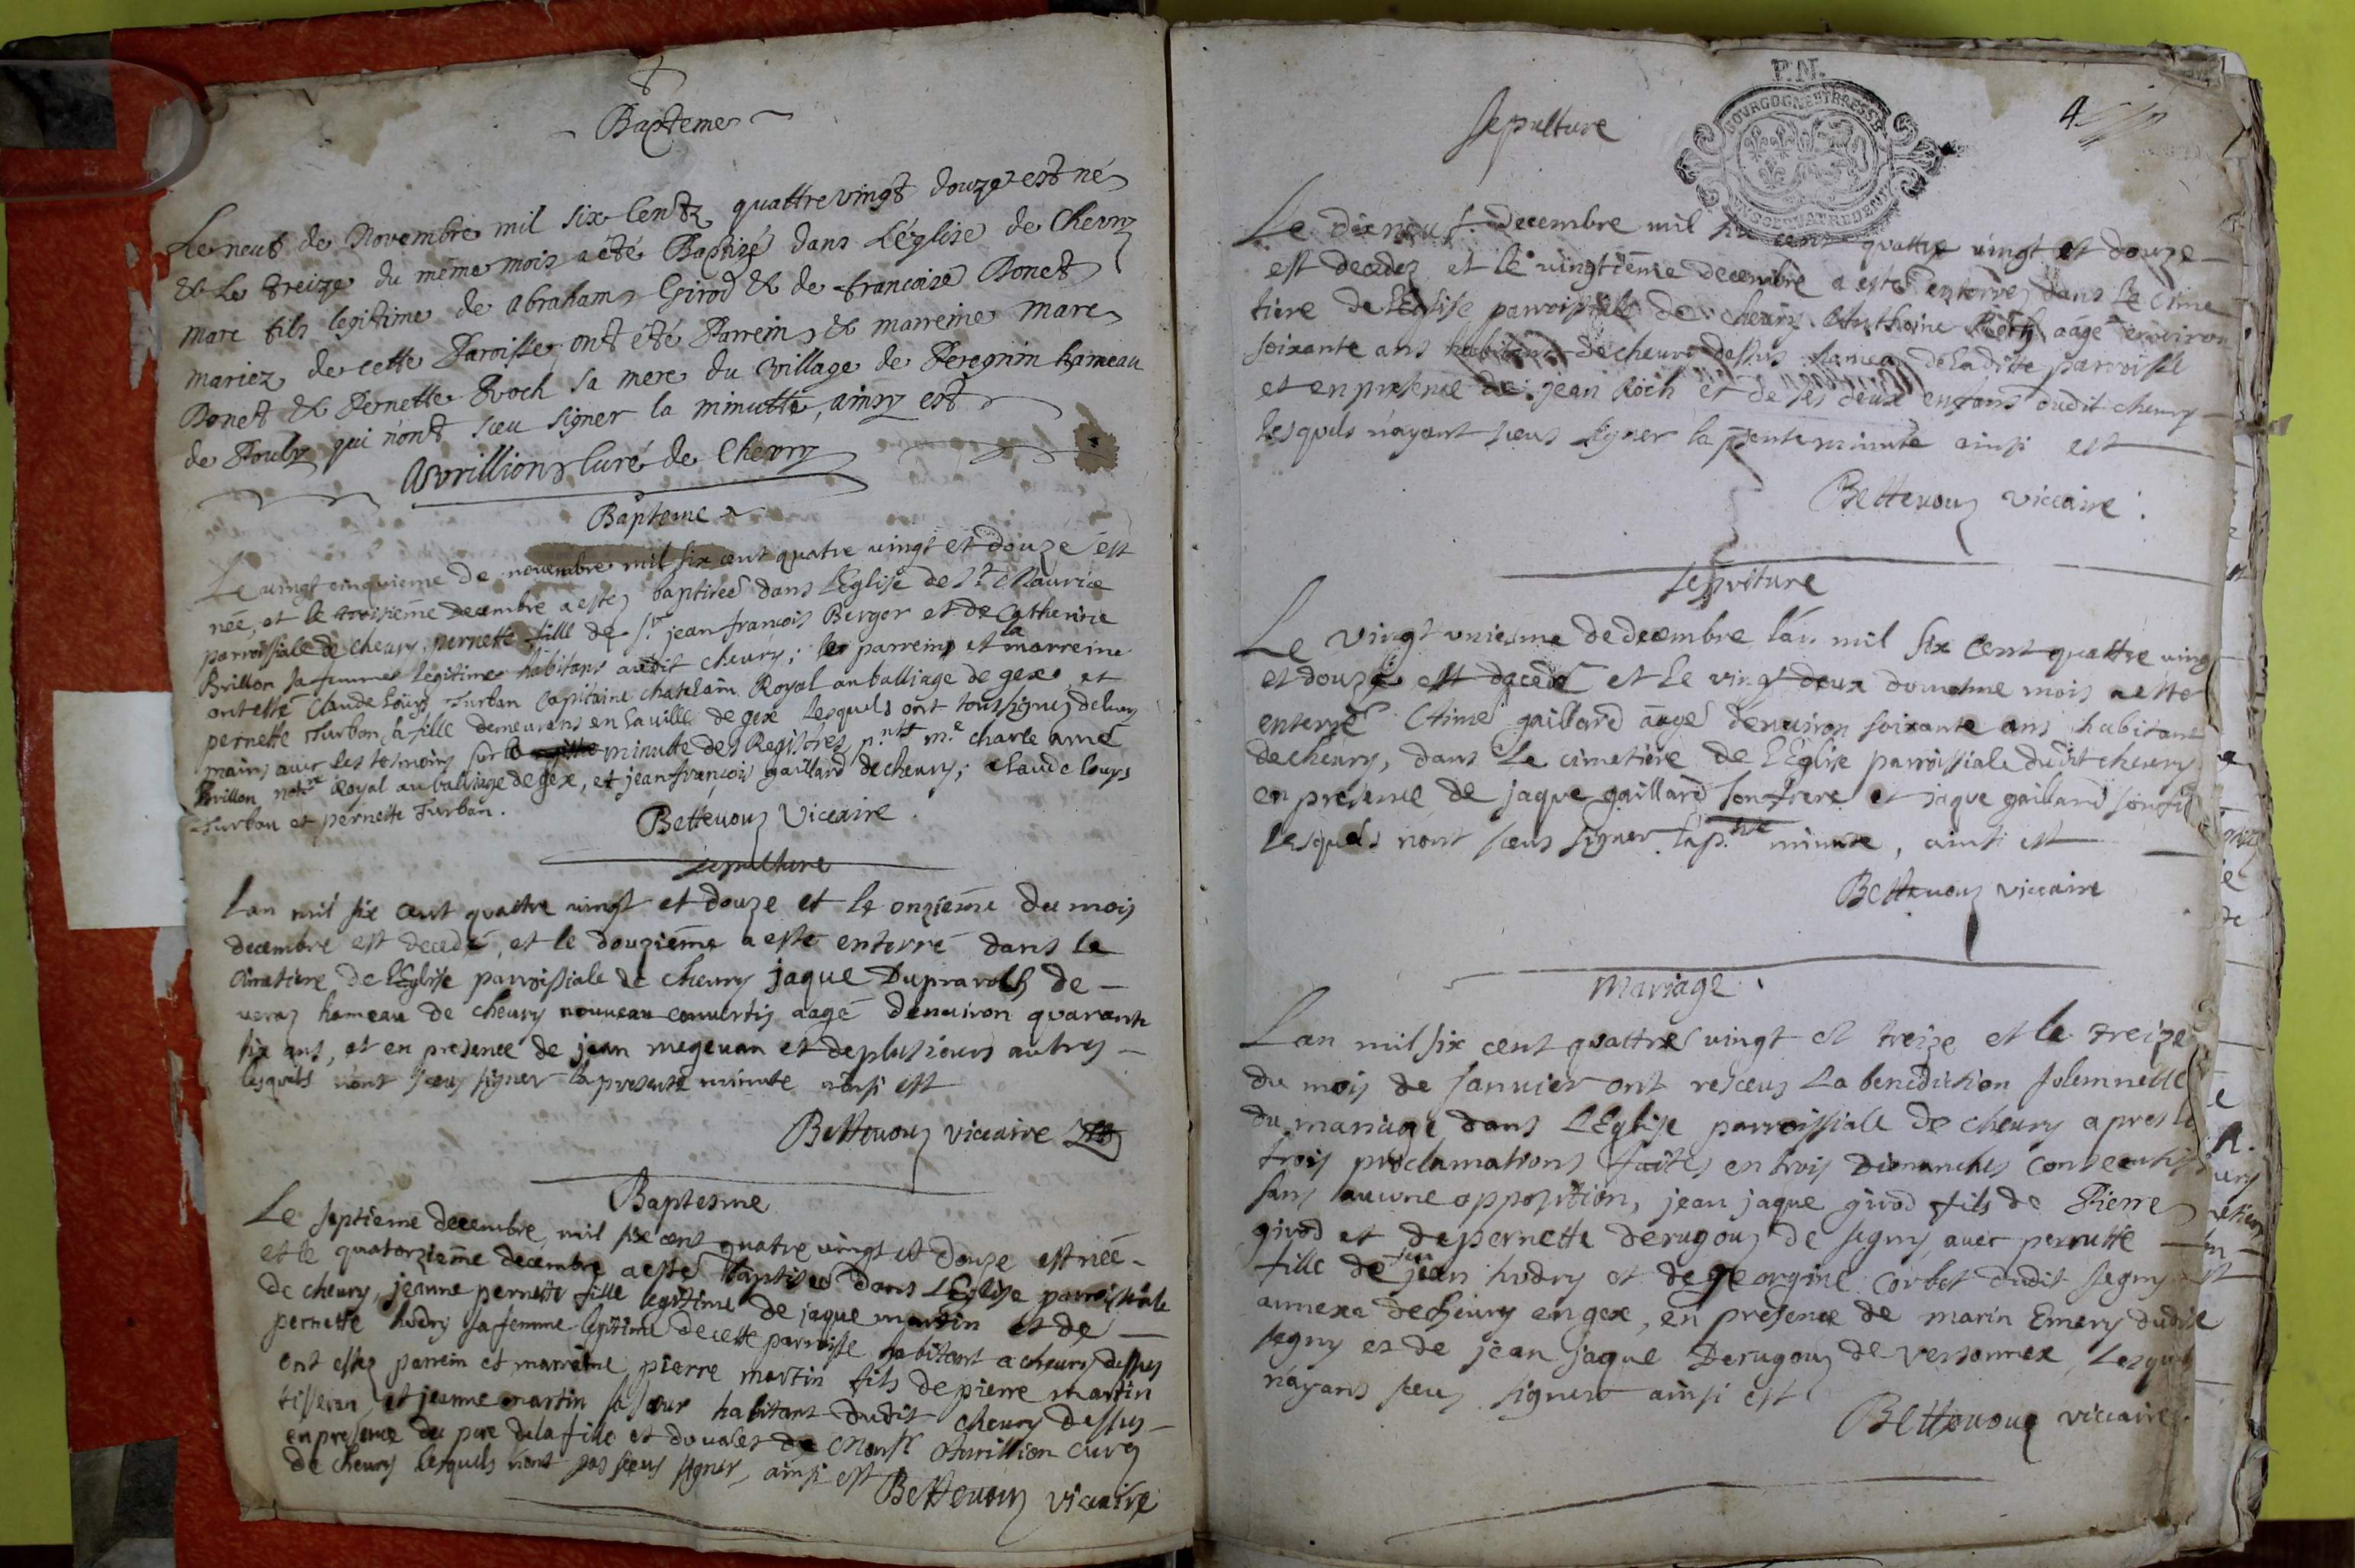 Bapteme
Le neuf de Novembre mil six Centz quattrevingt douze est né
& Le treize du même mois a été Baptizé dans L'église de Chevry
marc fils legitime de abraham Girod & de francoise Donet
mariez de cette Paroisse ont été Parrein & marreine marc
Donet & Pernette Roch sa mere du village de Peregnin hameau
de Pouly qui n'ont sceu signer la minutte, ainsy est
Avrillion Curé de Chevry
Bapteme
Le vingt cinquieme de novembre mil six cent quatre vingt et douze est
neé, et le troisieme decembre a estez baptiseé dans L'Eglise de St Maurice
parroissiale de cheury, pernette fille de Sr jean francois Berger et de Catherine
Brillon sa femme legitime habitans audit cheury; les parreins et la marreine
ont esté Claude Louys Furban Capitaine chatelain Royal au balliage de gex et
pernette Furban, sa fille demeurans en la ville de gex lesquels ont tous signez de leurs
mains avec les tesmoins sur la minutte des Registres, pnts me charle amé
Brillon notre Royal au balliage de gex, et jean françois gaillard de cheury; claude louys
Furban et pernette Furban.
Bettevouz Viccaire
sepulture
Lan mil six cent quattre vingt et douze et le onzieme du mois
decembre est decedé, et le douzieme a esté enterré dans le
cimetiere de l'Eglise parroissiale de cheury jaque Dupraroth de
veraz hameau de cheury nouveau convertis aagé denviron quarante
six ans, et en presence de jean megevan et de plusieurs autres
lesquels n'ont sceus signer la presente minute ainsi est
Bettevouz viccaire
Baptesme
Le septieme decembre, mil six cent quatre vingt et douze est neé
et le quatorzieme decembre a esté baptiseé dans L'Eglise parroissiale
de cheury, jeanne pernette fille legitime de jaque martin et de
pernette hudry sa femme legitime de cette parroisse habitant a cheury dessus
ont estez parrein et marreine pierre martin fils de pierre martin
tisseran, et jeanne martin sa soeur habitant dudit cheury dessus
en presence du pere de la fille et du valet de Monsr Avrillion curé
de cheury lesquels n'ont pas sceus signer, ainsi est
Bettevouz viccaire
P.N.
BOURGOGNE ET BRESSE
4
sepulture
Le dixneuf decembre mil six cent quattre vingt et douze
est decedez et le vingtieme decembre a esté enterrez dans le Cime
tiere de l'Eglise parroissiale de cheury Anthoine Roch aagé environ
soixante ans habitant de cheury dessus hameau de la dite parroisse
et en presence de jean Roch et de ses deux enfans dudit cheury
lesquels n'ayant sceus signer la pnte minute ainsi est
Bettevouz viccaire
sepulture
Le vingt unieme de decembre l'an mil six cent quattre ving
et douze est decedé et le vingt deux du meme mois a esté
enterré Aimé gaillard aagé denviron soixante ans habitant
de cheury, dans le cimetiere de l'Eglise parroissiale dudit cheury
en presence de jaque gaillard son frere et jaque gaillard son fils
lesquels n'ont sceus signer la pnte minute, ainsi est
Bettevouz viccaire
Mariage
Lan mil six cent quattre vingt et treize et le treize
du mois de janvier ont resceus La benediction solemnelle
du mariage dans L'Eglise parroissiale de cheury apres le
trois proclamations faites en trois dimanches consecutifs
sans aucune opposition, jean jaque girod fils de Pierre
girod et de pernette derugouz de segny avec pernette
fille de feu jean hudry et de georgine corbet dudit segny
annexe de cheury en gex, en presence de marin Emery dudit
segny et de jean jaque Derugouz de versonnex, Lesquels
n'ayans sceus signer ainsi est
Bettevouz viccaire